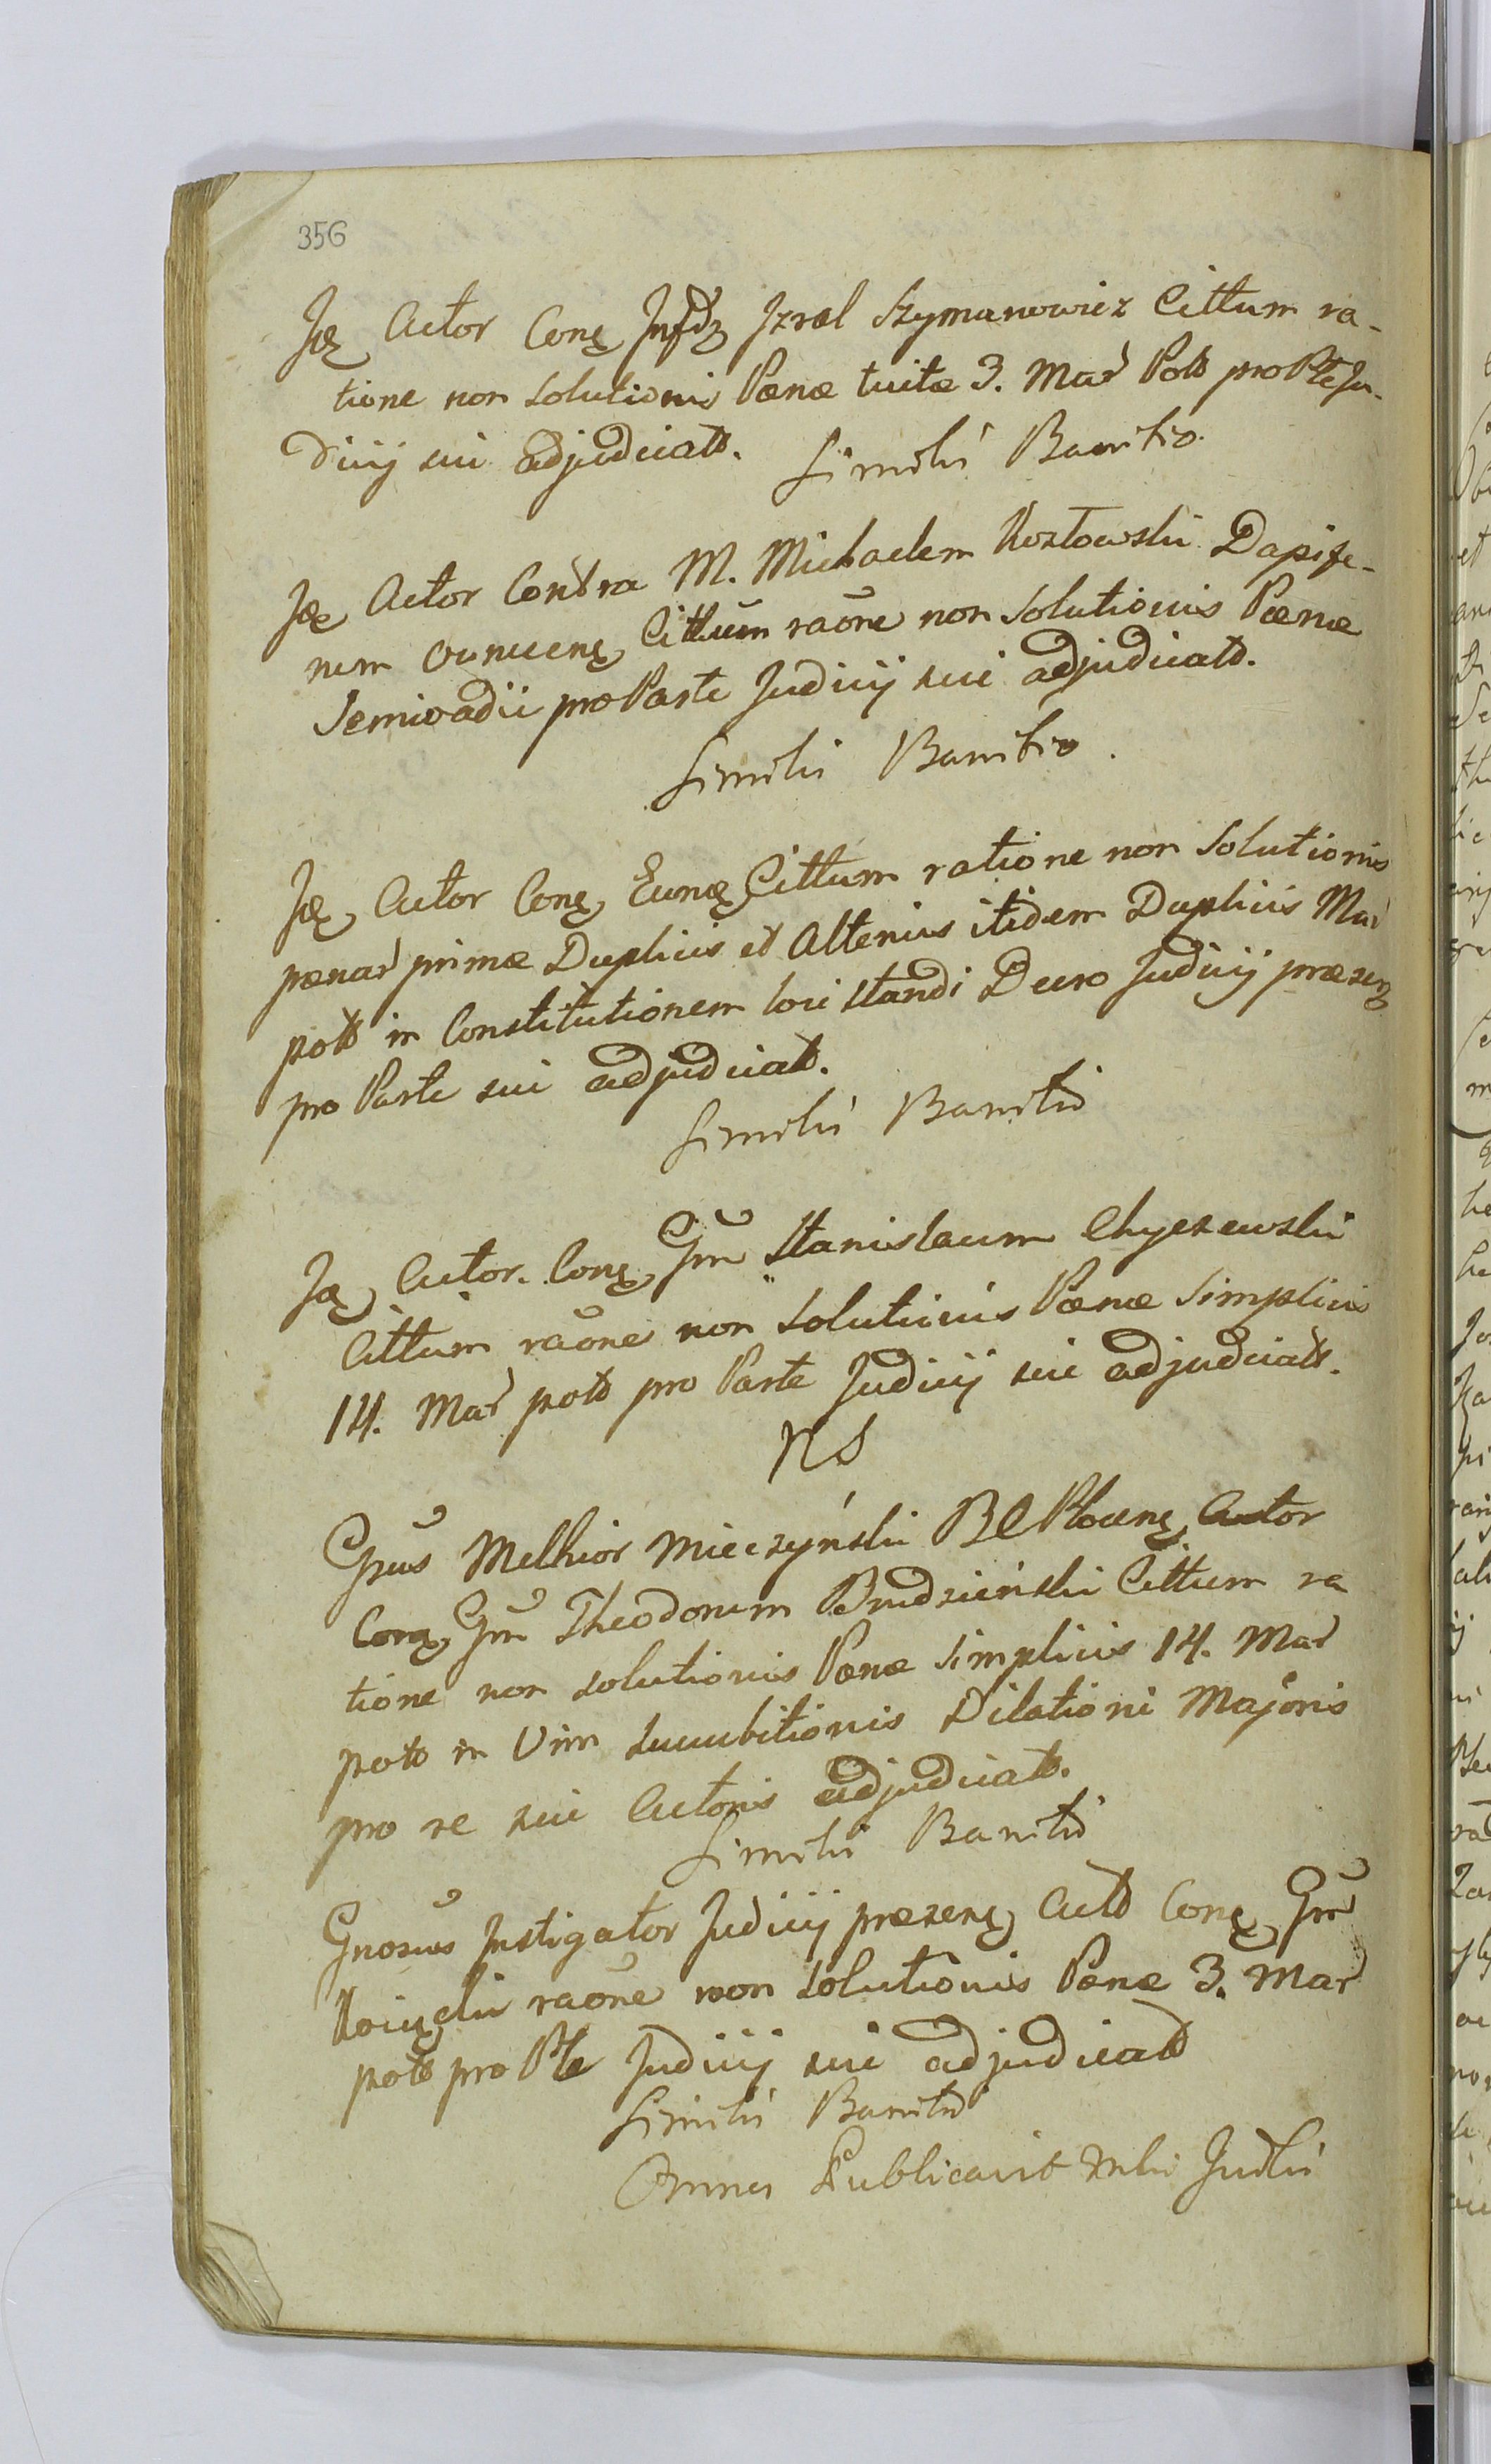 356
Ję Actor Conę Infdę Izrael Szymanowicz Cittum ra-
tione non solutionis Pœnæ luitæ 3. Mar Polt pro Pte Ju-
dicij sui adjudicatæ. Similis Banitio
Ję Actor Contra M. Michaelem Kozłowski Dapife-
rum Cittum raõne non solutionis Pœnæ
Semivadii pro Parte Judicij sui adjudicatæ.
Similis Banitio.
Ję Actor Conę Eunę Cittum ratione non Solutionis
pœnar primæ Duplicis et Alterius itidem Duplicis Mar
polt in Constitutionem loci standi Decro Judicij præsenę
pro Parte sui adjudicat.
Similis Banitio
Ję Actor. Conę Gm Stanislaum Chyczewski
Cittum raõne non solutionis Pœnæ Simplicis
14. Mar polt pro Parte Judicij sui adjudicat.
NS
Gnsus Melhior Mieczyński BC Plocenę Actor
Conę Gm Theodorum Brudzieński Cittum ra
tione non solutionis Pœnæ Simplicis 14. Mar
polt in Vim succubitionis Dilationi Majoris
pro re sui Actoris adjudicat.
Similis Banitio
Gnosus Instigator Judicij præsenę Act Conę Gm
raõne non solutionis Pœnæ 3. Mar
polt pro Pte Judicij sui adjudicat
Similis Banitio
Omnes Publicavit Mlis Judlis